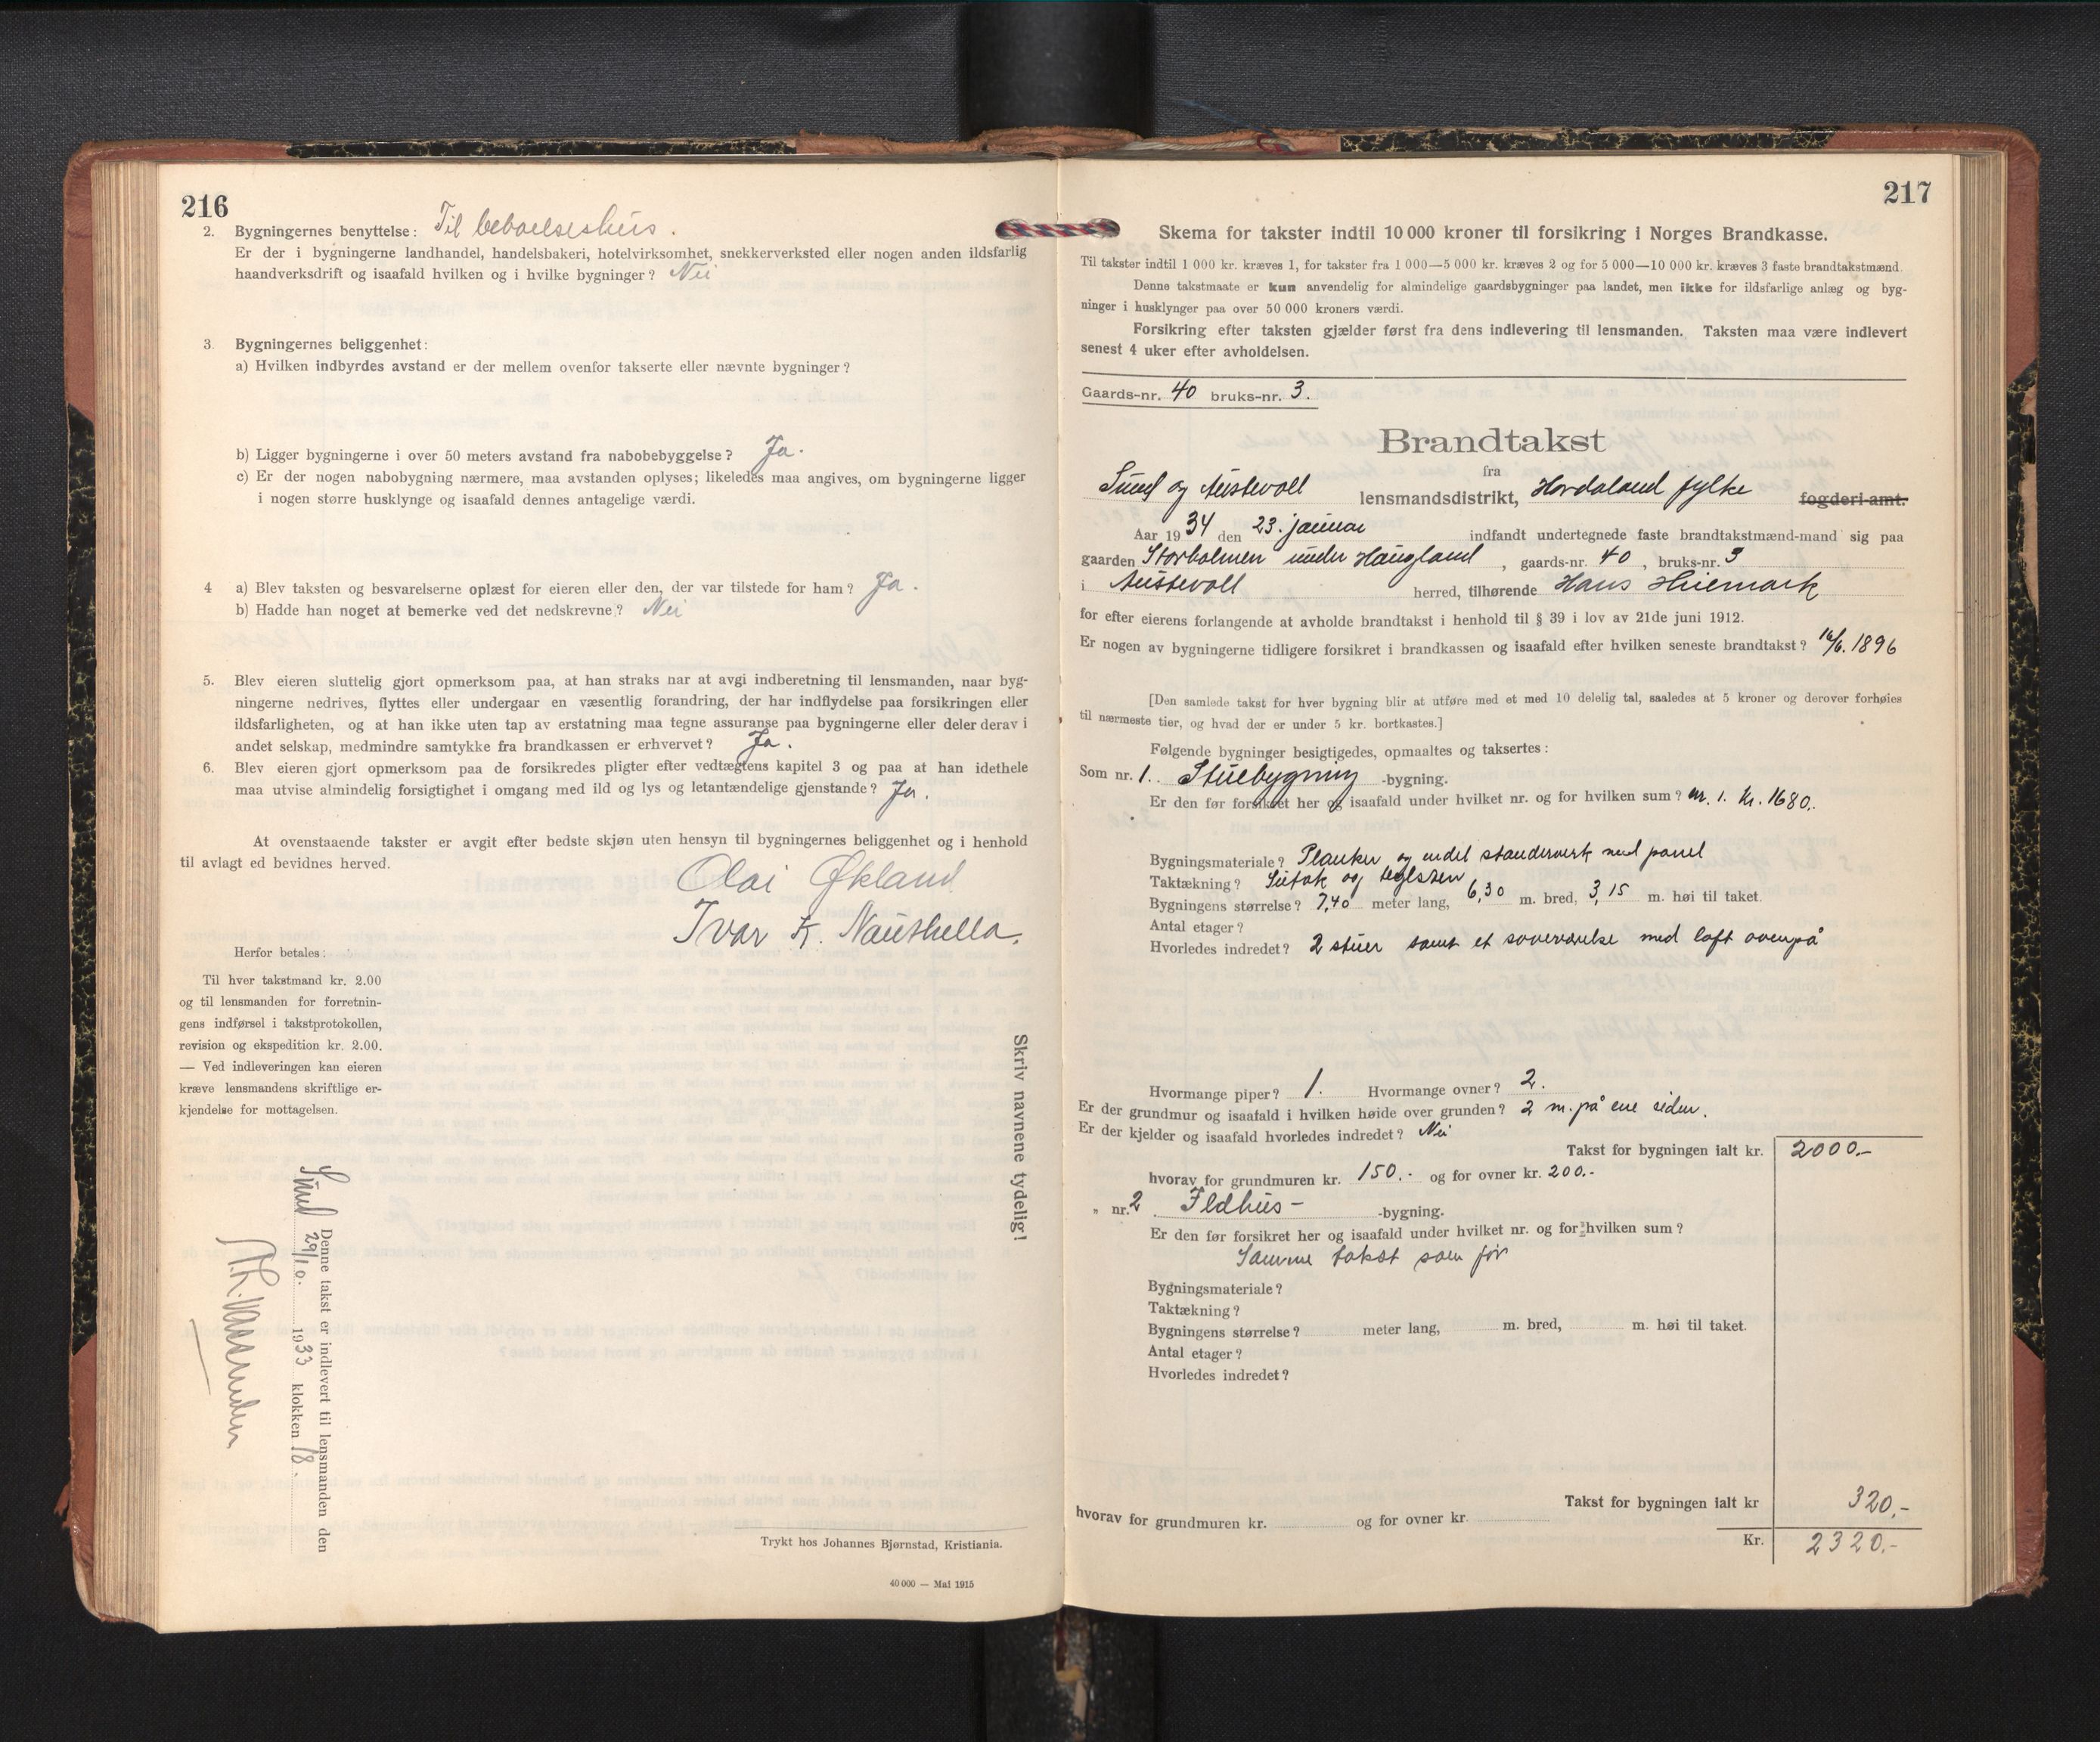 216
2. Bygningernes benyttelse: Til beboelseshus.
Er der i bygningerne landhandel, handelsbakeri, hotelvirksomhet, snekkerverksted eller nogen anden ildsfarlig
haandverksdrift og isaafald hvilken og i hvilke bygninger? Nei
3. Bygningernes beliggenhet:
a) Hvilken indbyrdes avstand er der mellem ovenfor takserte eller nævnte bygninger?
b) Ligger bygningerne i over 50 meters avstand fra nabobebyggelse? Ja.
c) Er der nogen nabobygning nærmere, maa avstanden oplyses; likeledes maa angives, om bygningerne ligger
i nogen større husklynge og isaafald dennes antagelige værdi.
4 a) Blev taksten og besvarelserne oplæst for eieren eller den, der var tilstede for ham? Ja.
b) Hadde han noget at bemerke ved det nedskrevne? Nei
5. Blev eieren sluttelig gjort opmerksom paa, at han straks har at avgi indberetning til lensmanden, naar byg-
ningerne nedrives, flyttes eller undergaar en væsentlig forandring, der har indflydelse paa forsikringen eller
ildsfarligheten, og at han ikke uten tap av erstatning maa tegne assuranse paa bygningerne eller deler derav i
andet selskap, medmindre samtykke fra brandkassen er erhvervet? Ja.
6. Blev eieren gjort opmerksom paa de forsikredes pligter efter vedtægtens kapitel 3 og paa at han idethele
maa utvise almindelig forsigtighet i omgang med ild og lys og letantændelige gjenstande? Ja.
At ovenstaaende takster er avgit efter bedste skjøn uten hensyn til bygningernes beliggenhet og i henhold
til avlagt ed bevidnes herved.
Olai Økland
Ivar K. Naustheller.
Herfor betales:
Til hver takstmand kr. 2.00
og til lensmanden for forretnin-
gens indførsel i takstprotokollen,
revision og ekspedition kr. 2.00.
— Ved indleveringen kan eieren
kræve lensmandens skriftlige er-
kjendelse for mottagelsen.
Skriv navnene tydelig!
Denne takst er indlevert til lensmanden den
Sund 29/10. 1933 klokken 18.
Trykt hos Johannes Bjørnstad, Kristiania.
40 000 — Mai 1915
217
Skema for takster indtil 10 000 kroner til forsikring i Norges Brandkasse.
Til takster indtil 1 000 kr. kræves 1, for takster fra 1 000—5 000 kr. kræves 2 og for 5 000—10 000 kr. kræves 3 faste brandtakstmænd.
Denne takstmaate er kun anvendelig for almindelige gaardsbygninger paa landet, men ikke for ildsfarlige anlæg og byg-
ninger i husklynger paa over 50 000 kroners værdi.
Forsikring efter taksten gjælder først fra dens indlevering til lensmanden. Taksten maa være indlevert
senest 4 uker efter avholdelsen.
Gaards-nr. 40 bruks-nr. 3.
Brandtakst
fra
Sund og Austevoll lensmandsdistrikt, Hordaland fylke fogderi-amt.
Aar 1934 den 23. januar indfandt undertegnede faste brandtakstmænd-mand sig paa
gaarden Storholmen under Haugland, gaards-nr. 40, bruks-nr. 3
i Austevoll herred, tilhørende Hans Huemark
for efter eierens forlangende at avholde brandtakst i henhold til § 39 i lov av 21de juni 1912.
Er nogen av bygningerne tidligere forsikret i brandkassen og isaafald efter hvilken seneste brandtakst? 16/6. 1896
[Den samlede takst for hver bygning blir at utføre med et med 10 delelig tal, saaledes at 5 kroner og derover forhøies
til nærmeste tier, og hvad der er under 5 kr. bortkastes.]
Følgende bygninger besigtigedes, opmaaltes og taksertes:
Som nr. 1. Stuebygning -bygning.
Er den før forsikret her og isaafald under hvilket nr. og for hvilken sum? nr. 1. kr. 1680.
Bygningsmateriale? Planker og endel standerverk med panel
Taktækning? Sutak og teglsten
Bygningens størrelse? 7,40 meter lang, 6,30 m. bred, 3,15 m. høi til taket.
Antal etager?
Hvorledes indredet? 2 stuer samt et soveværelse med loft ovenpå
Hvormange piper? 1. Hvormange ovner? 2.
Er der grundmur og isaafald i hvilken høide over grunden? 2 m. på ene siden.
Er der kjelder og isaafald hvorledes indredet? Nei
Takst for bygningen ialt kr. 2000.-
hvorav for grundmuren kr. 150.- og for ovner kr. 200.-
„ nr. 2 Ildhus- -bygning.
Er den før forsikret her og isaafald under hvilket nr. og for hvilken sum?
Samme takst som før
Bygningsmateriale?
Taktækning?
Bygningens størrelse? meter lang, m. bred, m. høi til taket.
Antal etager?
Hvorledes indredet?
Takst for bygningen ialt kr 320,-
hvorav for grundmuren kr. og for ovner kr.
Kr. 2320.-